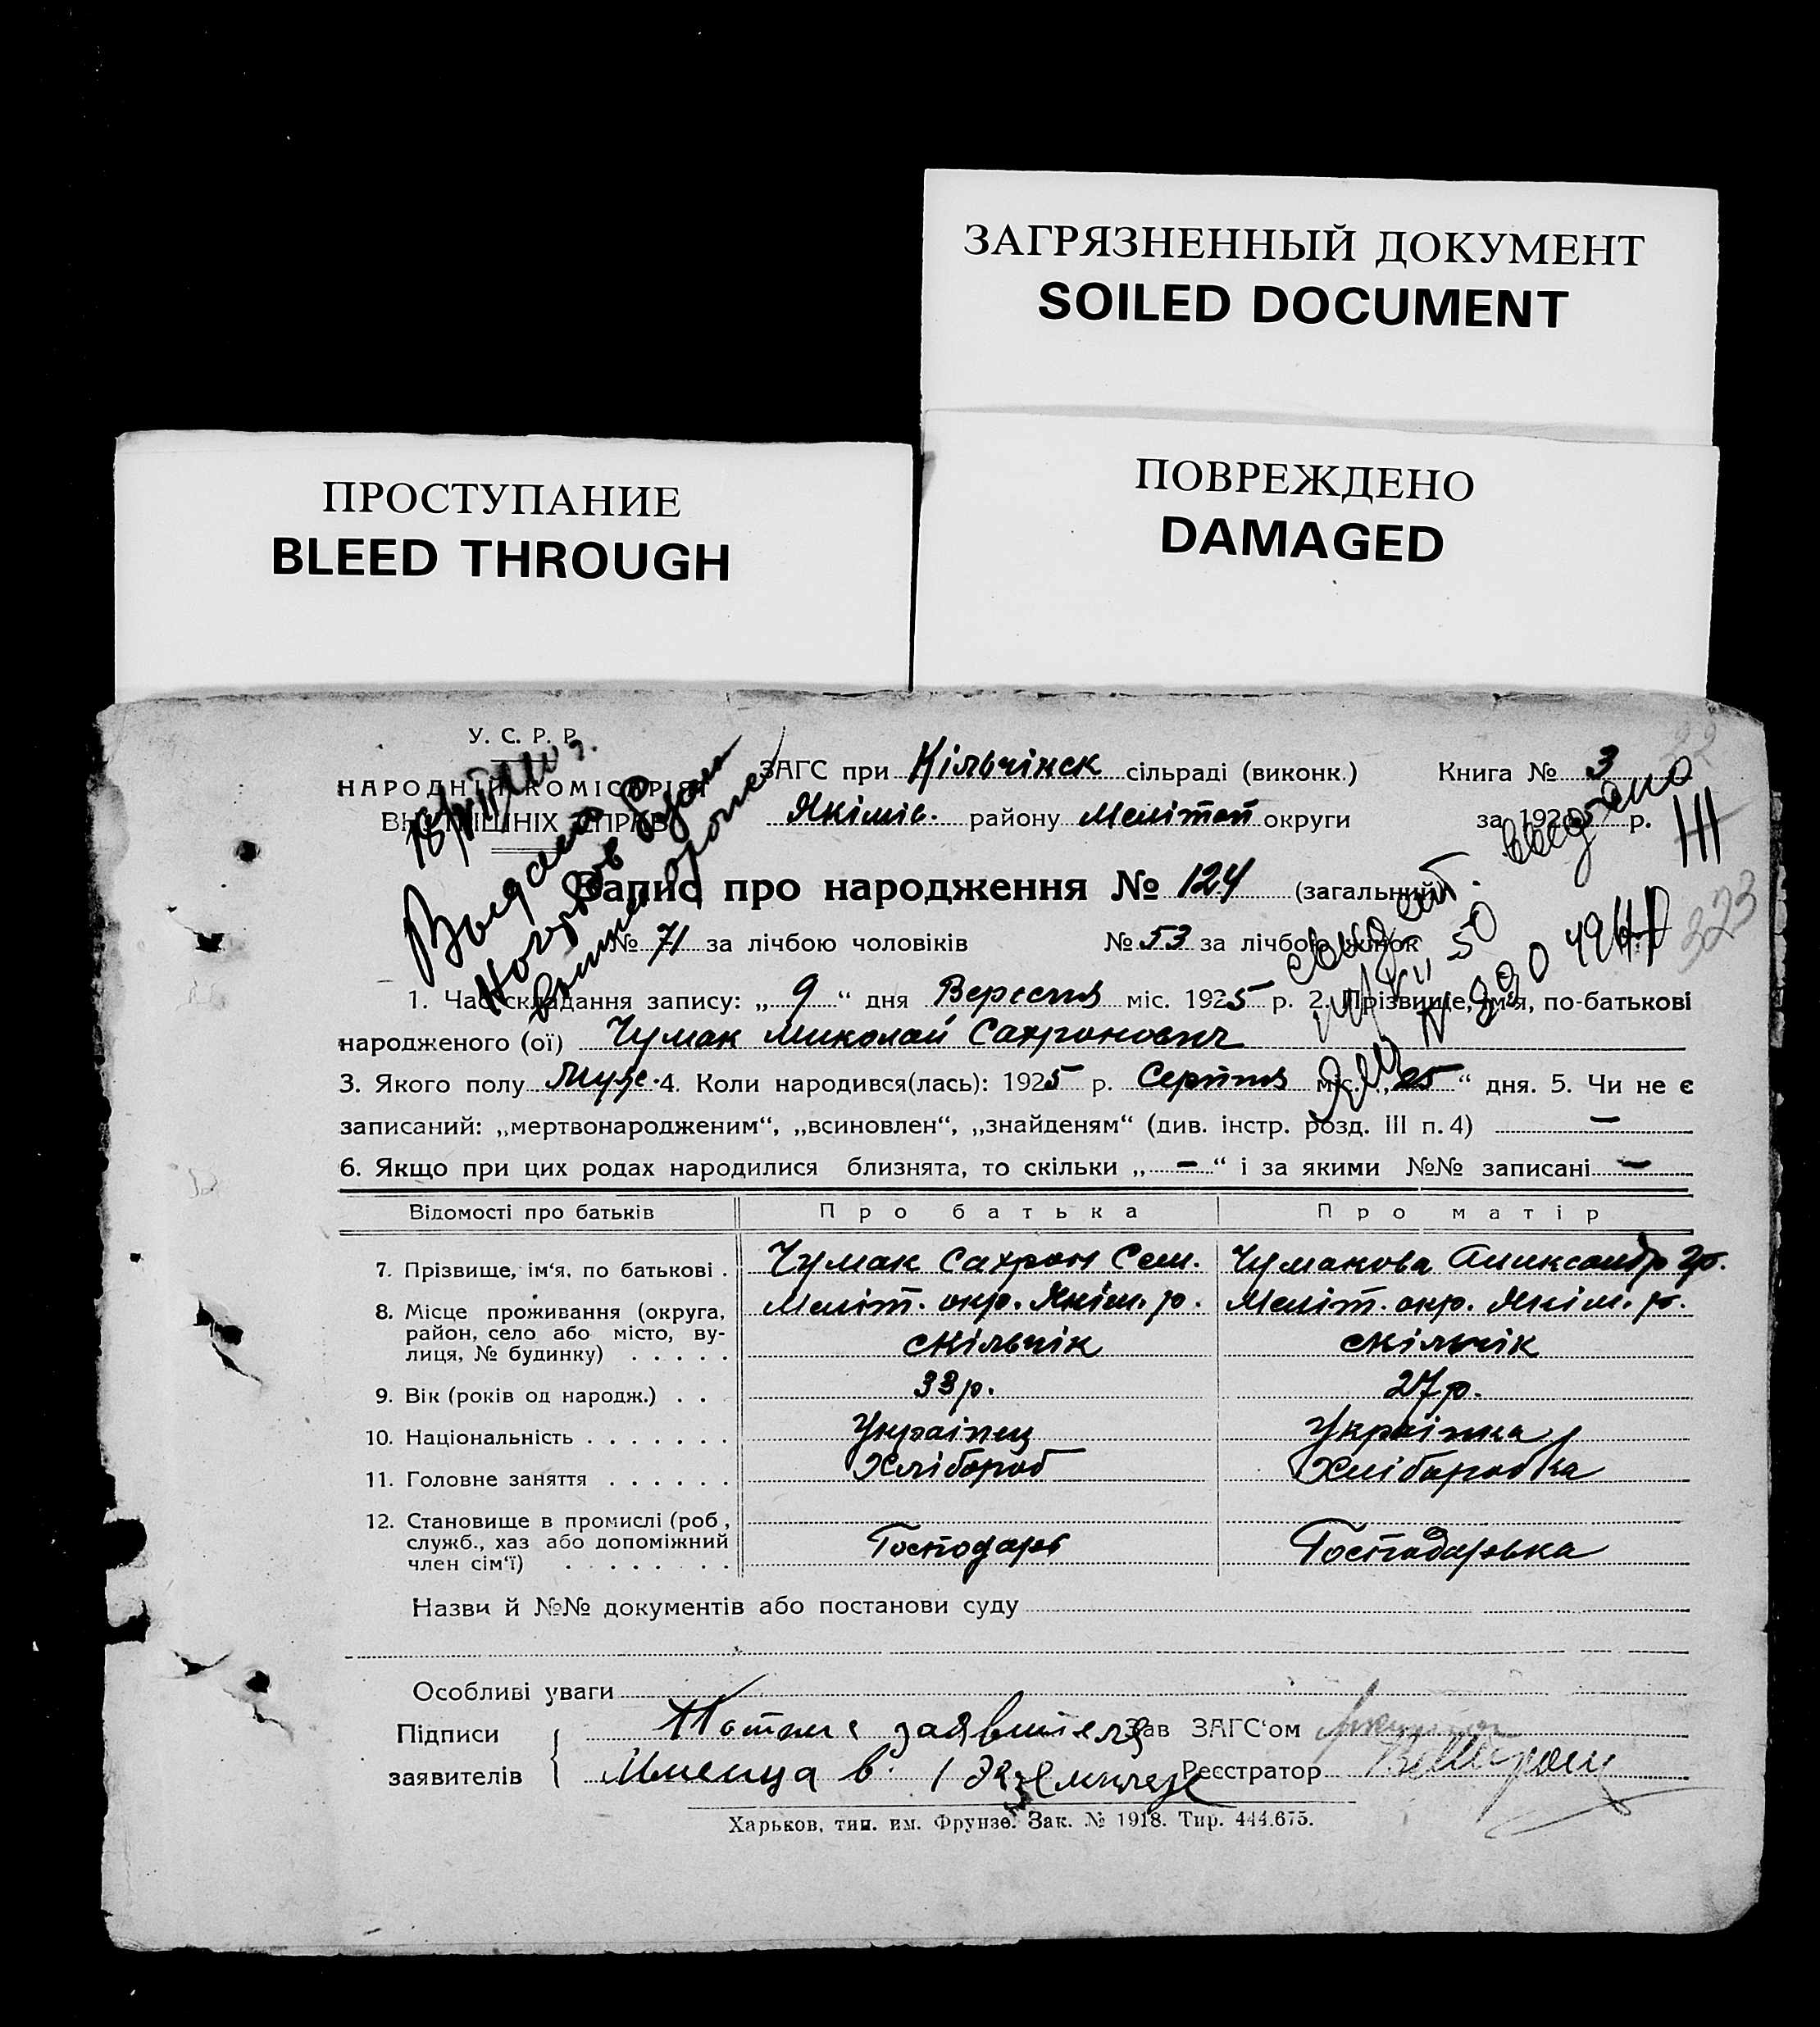 ЗАГРЯЗНЕННЫЙ ДОКУМЕНТ
SOILED DOCUMENT
ПРОСТУПАНИЕ
BLEED THROUGH
ПОВРЕЖДЕНО
DAMAGED
У. С. Р. Р.
НАРОДНІЙ КОМІСАРІЯТ
ВНУТРІШНІХ СПРАВ
ЗАГС при Кільчінск сільраді (виконк.) Книга № 3
Якімів. району Мелітоп округи за 192 р.
Запис про народження № 124 (загальний)
№ 71 за лічбою чоловіків № 53 за лічбою жінок
323
1. Час складання запису: „ 9 “ дня Вересня міс. 1925 р. 2. Прізвище, ім'я, по-батькові
народженого (ої) Чумак Миколай Сахронович
3. Якого полу Муж. 4. Коли народився(лась): 1925 р. Серпня міс. „25“ дня. 5. Чи не є
записаний: „мертвонародженим“, „всиновлен“, „знайденям“ (див. інстр. розд. III п. 4) —
6. Якщо при цих родах народилися близнята, то скільки „ — “ і за якими №№ записані —
Відомості про батьків Про батька Про матір
7. Прізвище, ім‘я, по батькові . Чумак Сахрон Сем. Чумакова Александр Гр.
8. Місце проживання (округа, Меліт. окр. Якім. р. Меліт. окр. Якім. р.
район, село або місто, ву-
лиця, № будинку) . . . . . с Кільчік с Кільчік
9. Вік (років од народж.) . . 33 р. 27 р.
10. Національність . . . . . . . Українец Українка
11. Головне заняття . . . . . . Хлібороб Хлібаробка
12. Становище в промислі (роб.,
служб., хаз або допоміжний
член сім‘ї) . . . . . . . Господарь Господарька
Назви й №№ документів або постанови суду
Особливі уваги
Підписи заявителя Зав ЗАГС‘ом
заявителів Реєстратор
Харьков, тип. им. Фрунзе. Зак. № 1918. Тир. 444.675.